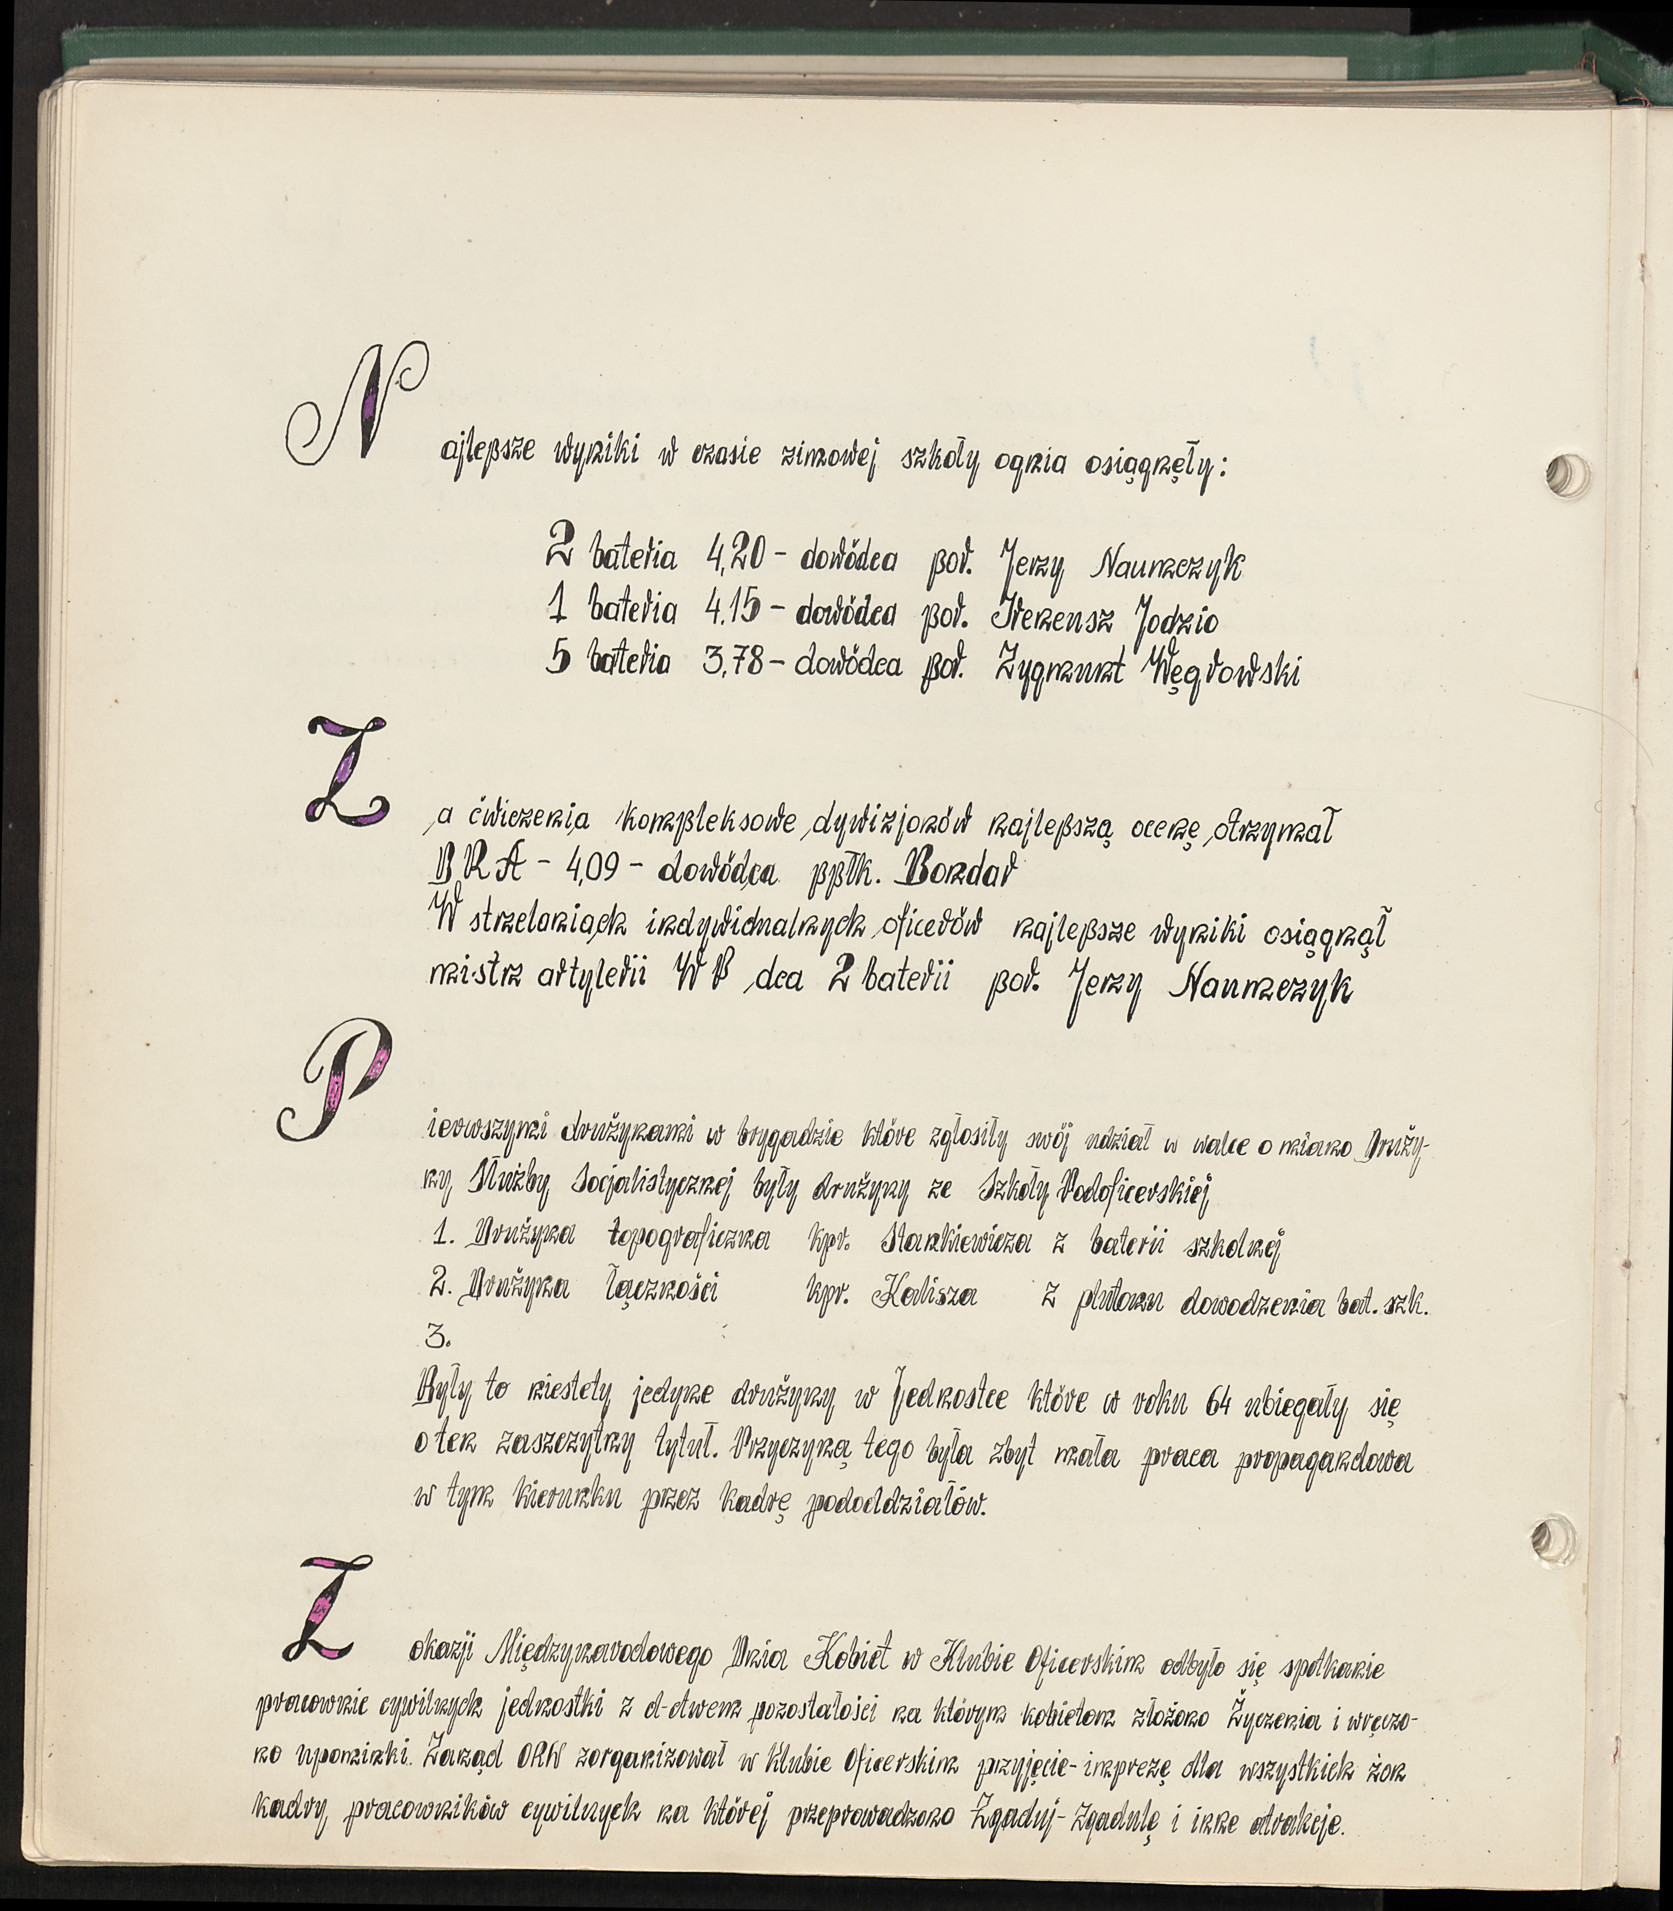 Najlepsze wyniki w czasie zimowej szkoły ognia osiągnęły:
2 bateria 4,20 - dowódca por. Jerzy Naumczyk
1 bateria 4,15 - dowódca por. Ireneusz Jodzio
5 bateria 3,78 - dowódca por. Zygmunt Węgrowski
Za ćwiczenia kompleksowe dywizjonów najlepszą ocenę otrzymał
DRA - 4,09 - dowódca ppłk. Bondar
W strzelaniach indywidualnych oficerów najlepsze wyniki osiągnął
mistrz artylerii WP dca 2 baterii por. Jerzy Naumczyk
Pierwszymi drużynami w brygadzie które zgłosiły swój udział w walce o miano Druży-
ny Służby Socjalistycznej były drużyny ze Szkoły Podoficerskiej
1. Drużyna topograficzna kpr. Stankiewicza z baterii szkolnej
2. Drużyna łączności kpr. Kalisza z plutonu dowodzenia bat. szk.
3.
Były to niestety jedyne drużyny w Jednostce które w roku 64 ubiegały się
o ten zaszczytny tytuł. Przyczyną tego była zbyt mała praca propagandowa
w tym kierunku przez kadrę pododdziałów.
Z okazji Międzynarodowego Dnia Kobiet w Klubie Oficerskim odbyło się spotkanie
pracownic cywilnych jednostki z d-ctwem pozostałości na którym kobietom złożono Życzenia i wręczo-
no upominki. Zarząd ORW zorganizował w Klubie Oficerskim przyjęcie-imprezę dla wszystkich żon
kadry pracowników cywilnych na której przeprowadzono Zgaduj-Zgadulę i inne atrakcje.